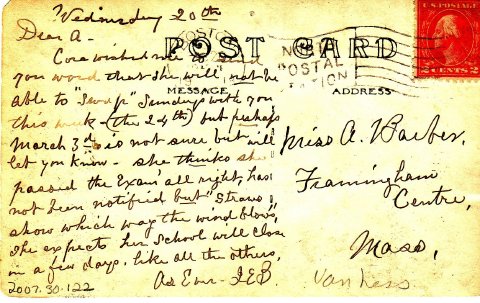 Wednesday 20th
Dear A-
Cora wished me to send
you word that she will not be
able to "swap" Sundays with you
this week - (the 24th) but perhaps
March 3d is not sure but will
let you know - she thinks she
passed the Exam' all right, has
not been notified but "straws
show which way the wind blows",
she expects her school will close
in a few days, like all the others,
As Ever - I E B
2007.30.122
POST CARD
MESSAGE
ADDRESS
BOSTON
POSTAL
STATION
U.S. POSTAGE
2 CENTS 2
Miss A. Barber,
Framingham
Centre,
Mass,
Van Ness